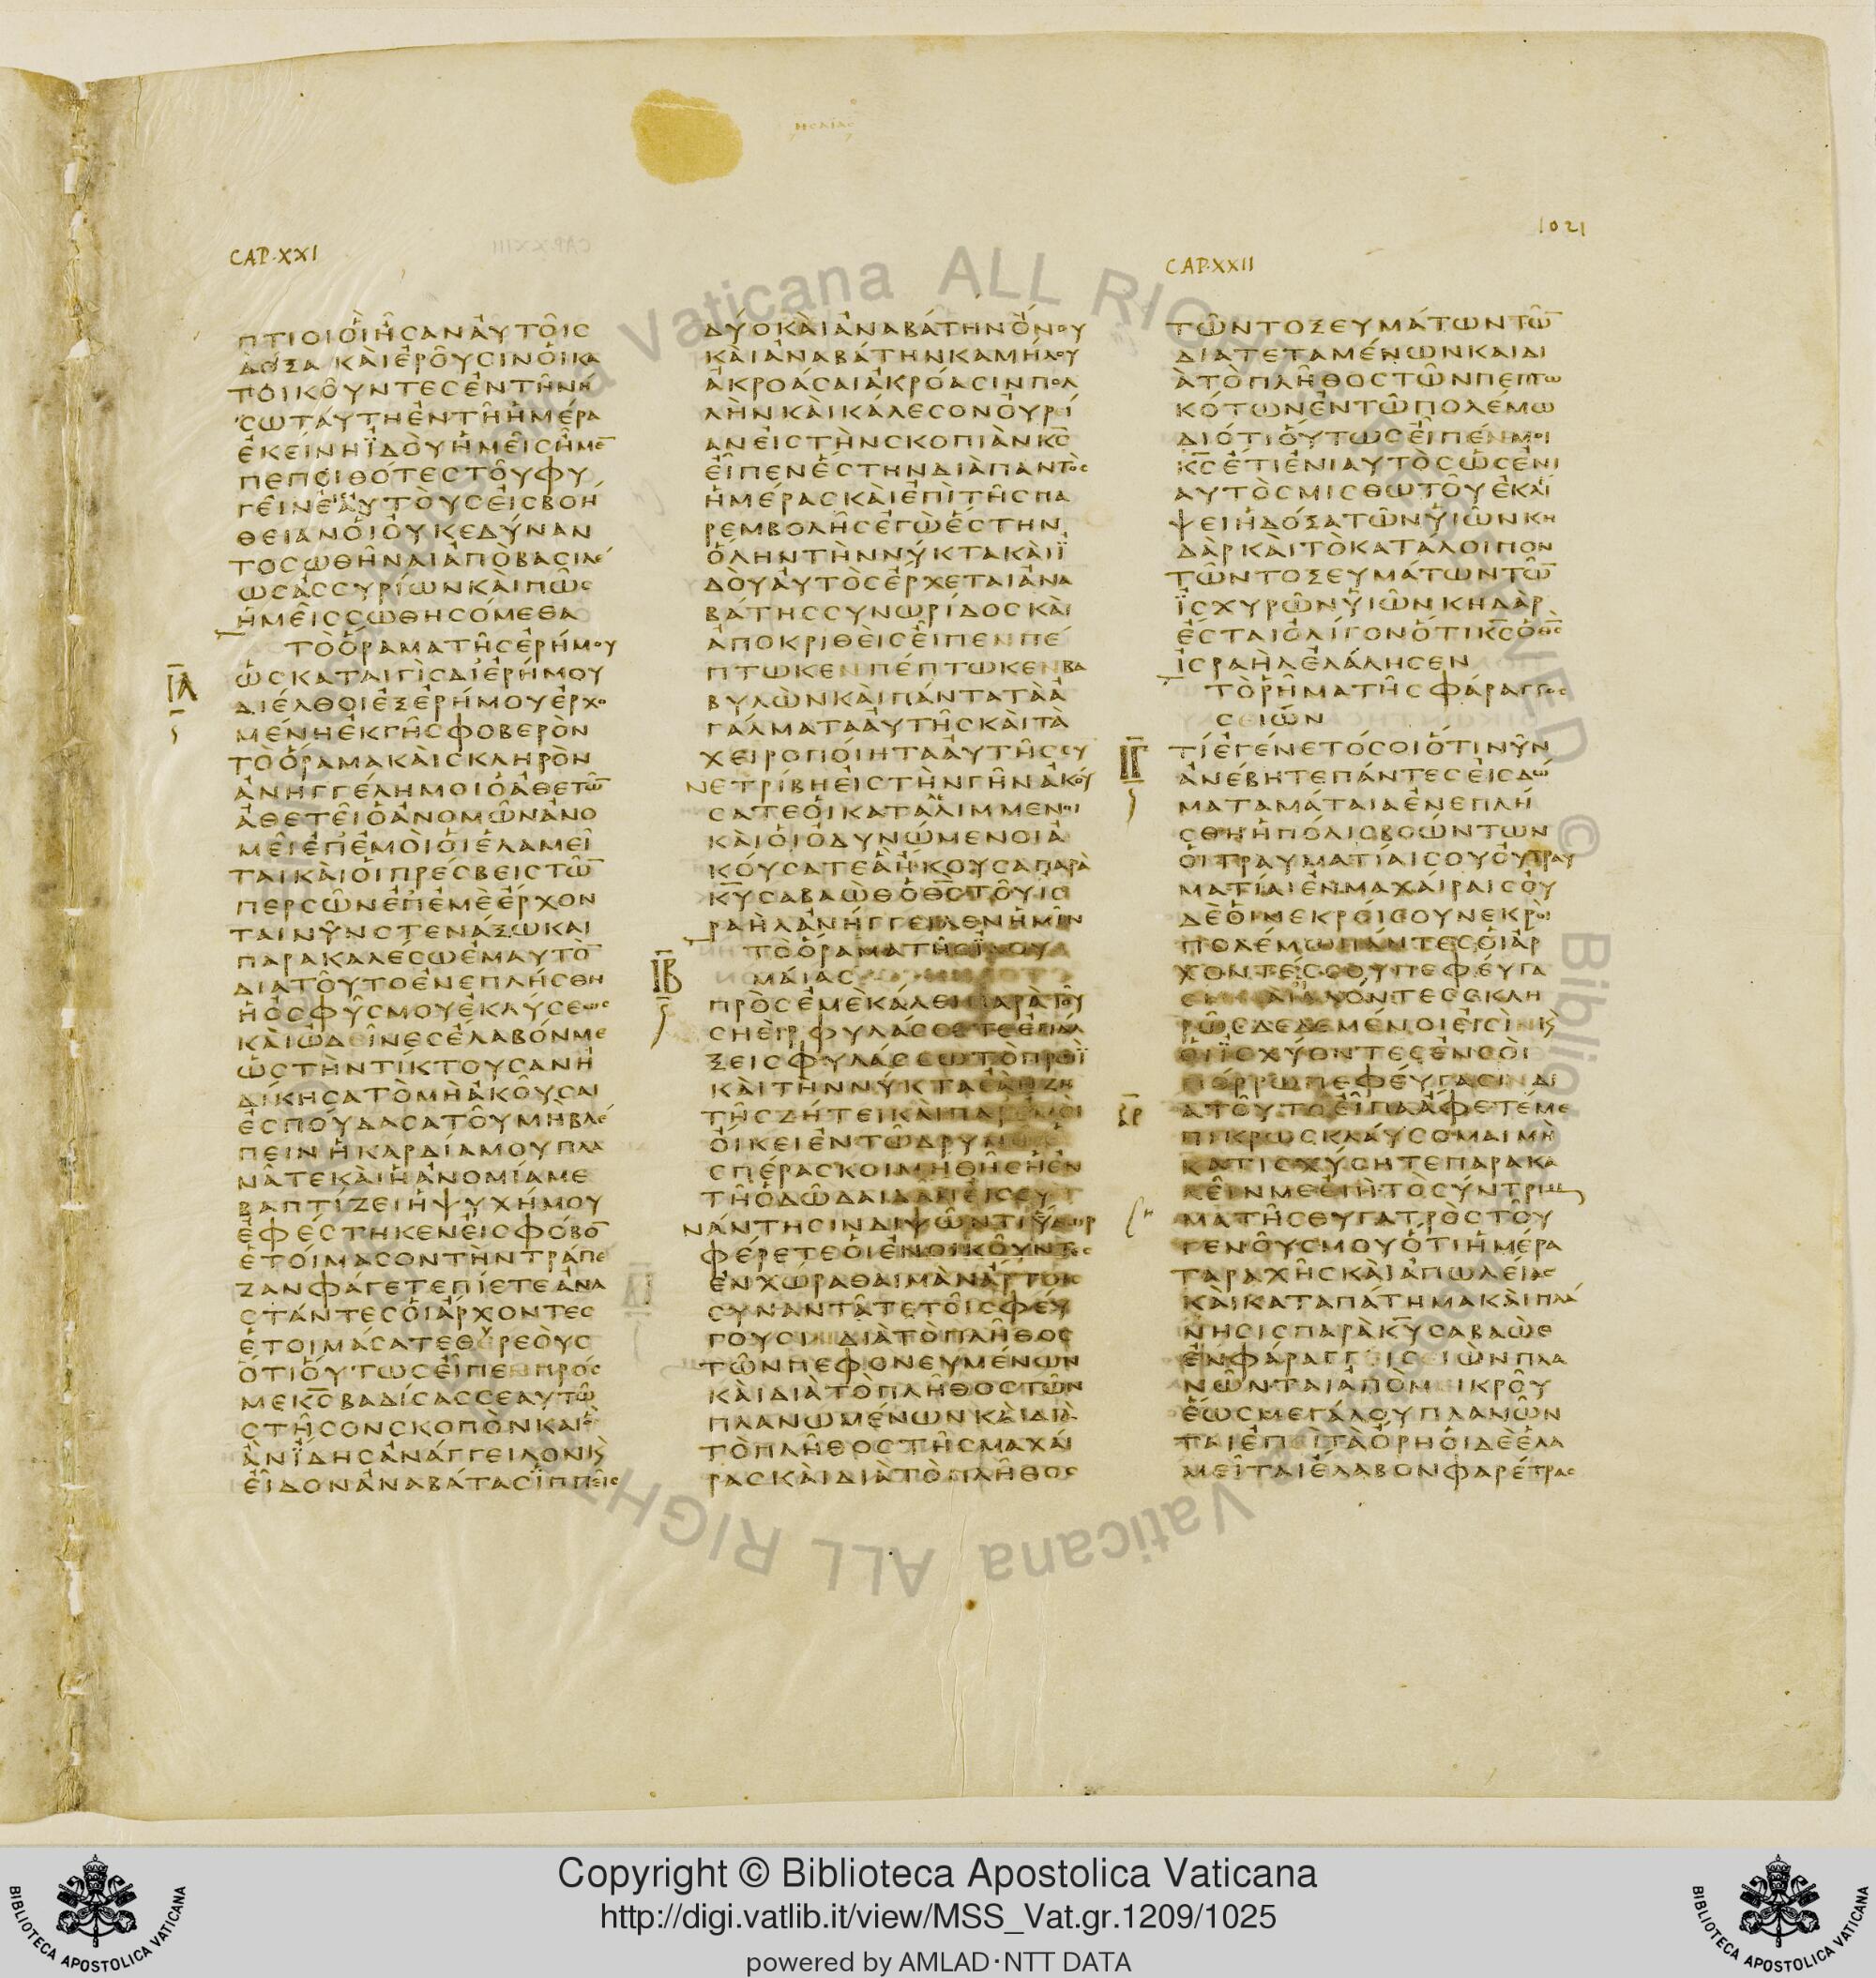 ησαιας
1021
CAP·XXI
CAP·XXII
ΠΤΙΟΙΟΙΗϹΑΝΑΥΤΟΙϹ
ΔΟΞΑ ΚΑΙΕΡΟΥϹΙΝΟΙΚΑ
ΤΟΙΚΟΥΝΤΕϹΕΝΤΗΝΗ
ϹΩΤΑΥΤΗΕΝΤΗΗΜΕΡΑ
ΕΚΕΙΝΗΪΔΟΥΗΜΕΙϹΗΜΕ̅
ΠΕΠΟΙΘΟΤΕϹΤΟΥΦΥ
ΓΕΙΝΕΙϹΑΥΤΟΥϹΕΙϹΒΟΗ
ΘΕΙΑΝΟΙΟΥΚΕΔΥΝΑΝ
ΤΟϹΩΘΗΝΑΙΑΠΟΒΑϹΙΛΕ
ΩϹΑϹϹΥΡΙΩΝΚΑΙΠΩϹ
ΗΜΕΙϹϹΩΘΗϹΟΜΕΘΑ
ΤΟΟΡΑΜΑΤΗϹΕΡΗΜΟΥ
ΙΑ
ΩϹΚΑΤΑΙΓΙϹΔΙΕΡΗΜΟΥ
ΔΙΕΛΘΟΙΕΞΕΡΗΜΟΥΕΡΧΟ
ΜΕΝΗΕΚΓΗϹΦΟΒΕΡΟΝ
ΤΟΟΡΑΜΑΚΑΙϹΚΛΗΡΟΝ
ΑΝΗΓΓΕΛΗΜΟΙΟΑΘΕΤΩ̅
ΑΘΕΤΕΙΟΑΝΟΜΩΝΑΝΟ
ΜΕΙΕΠΕΜΟΙΟΙΕΛΑΜΕΙ
ΤΑΙΚΑΙΟΙΠΡΕϹΒΕΙϹΤΩ̅
ΠΕΡϹΩΝΕΠΕΜΕΕΡΧΟΝ
ΤΑΙΝΥΝϹΤΕΝΑΞΩΚΑΙ
ΠΑΡΑΚΑΛΕϹΩΕΜΑΥΤΟ̅
ΔΙΑΤΟΥΤΟΕΝΕΠΛΗϹΘΗ
ΗΟϹΦΥϹΜΟΥΕΚΛΥϹΕΩϹ
ΚΑΙΩΔΕΙΝΕϹΕΛΑΒΟΝΜΕ
ΩϹΤΗΝΤΙΚΤΟΥϹΑΝΗ
ΔΙΚΗϹΑΤΟΜΗΑΚΟΥϹΑΙ
ΕϹΠΟΥΔΑϹΑΤΟΥΜΗΒΛΕ
ΠΕΙΝΗΚΑΡΔΙΑΜΟΥΠΛΑ
ΝΑΤΕΚΑΙΗΑΝΟΜΙΑΜΕ
ΒΑΠΤΙΖΕΙΗΨΥΧΗΜΟΥ
ΕΦΕϹΤΗΚΕΝΕΙϹΦΟΒΟ̅
ΕΤΟΙΜΑϹΟΝΤΗΝΤΡΑΠΕ
ΖΑΝΦΑΓΕΤΕΠΙΕΤΕΑΝΑ
ϹΤΑΝΤΕϹΟΙΑΡΧΟΝΤΕϹ
ΕΤΟΙΜΑϹΑΤΕΘΥΡΕΟΥϹ
ΟΤΙΟΥΤΩϹΕΙΠΕΝΠΡΟϹ
ΜΕΚ̅Ϲ̅ΒΑΔΙϹΑϹϹΕΑΥΤΩ
ϹΤΗϹΟΝϹΚΟΠΟΝΚΑΙΕ
ΑΝΪΔΗϹΑΝΑΓΓΕΙΛΟΝΚϚ
ΕΙΔΟΝΑΝΑΒΑΤΑϹΪΠΠΕΙϹ
ΔΥΟΚΑΙΑΝΑΒΑΤΗΝΟΝΟΥ
ΚΑΙΑΝΑΒΑΤΗΝΚΑΜΗΛΟΥ
ΑΚΡΟΑϹΑΙΑΚΡΟΑϹΙΝΠΟΛ
ΛΗΝΚΑΙΚΑΛΕϹΟΝΟΥΡΙ
ΑΝΕΙϹΤΗΝϹΚΟΠΙΑΝΚ̅Ϲ̅
ΕΙΠΕΝΕϹΤΗΝΔΙΑΠΑΝΤΟϹ
ΗΜΕΡΑϹΚΑΙΕΠΙΤΗϹΠΑ
ΡΕΜΒΟΛΗϹΕΓΩΕϹΤΗΝ
ΟΛΗΝΤΗΝΝΥΚΤΑΚΑΙΪ
ΔΟΥΑΥΤΟϹΕΡΧΕΤΑΙΑΝΑ
ΒΑΤΗϹϹΥΝΩΡΙΔΟϹΚΑΙ
ΑΠΟΚΡΙΘΕΙϹΕΙΠΕΝΠΕ
ΠΤΩΚΕΝΠΕΠΤΩΚΕΝΒΑ
ΒΥΛΩΝΚΑΙΠΑΝΤΑΤΑΑ
ΓΑΛΜΑΤΑΑΥΤΗϹΚΑΙΤΑ
ΧΕΙΡΟΠΟΙΗΤΑΑΥΤΗϹϹΥ
ΝΕΤΡΙΒΗΕΙϹΤΗΝΓΗΝΑΚΟΥ
ϹΑΤΕΟΙΚΑΤΑΛΙΜΜΕΝΟΙ
ΚΑΙΟΙΟΔΥΝΩΜΕΝΟΙΑ
ΚΟΥϹΑΤΕΑΗΚΟΥϹΑΠΑΡΑ
Κ̅Υ̅ϹΑΒΑΩΘΟΘ̅Ϲ̅ΤΟΥΙϹ
ΡΑΗΛΑΝΗΓΓΕΙΛΕΝΗΜΙΝ
ΤΟΟΡΑΜΑΤΗϹΪΔΟΥ
ΙΒ
ΜΑΙΑϹ
ΠΡΟϹΕΜΕΚΑΛΕΙΠΑΡΑΤΟΥ
ϹΗΕΙΡΦΥΛΑϹϹΕΤΕΕΠΑΛ
ΞΕΙϹΦΥΛΑϹϹΩΤΟΠΡΩΪ
ΚΑΙΤΗΝΝΥΚΤΑΕΑΝΖΗ
ΤΗϹΖΗΤΕΙΚΑΙΠΑΡΕΜΟΙ
ΟΙΚΕΙΕΝΤΩΔΡΥΜΩ
ϹΠΕΡΑϹΚΟΙΜΗΘΗϹΗΕΝ
ΤΗΟΔΩΔΑΙΔΑΝΕΙϹϹΥ
ΝΑΝΤΗϹΙΝΔΙΨΩΝΤΙΥΔΩΡ
ΦΕΡΕΤΕΟΙΕΝΟΙΚΟΥΝΤΕϹ
ΕΝΧΩΡΑΘΑΙΜΑΝΑΡΤΟΙϹ
ϹΥΝΑΝΤΑΤΕΤΟΙϹΦΕΥ
ΓΟΥϹΙΝ ΔΙΑΤΟΠΛΗΘΟϹ
ΤΩΝΠΕΦΟΝΕΥΜΕΝΩΝ
ΚΑΙΔΙΑΤΟΠΛΗΘΟϹΤΩΝ
ΠΛΑΝΩΜΕΝΩΝΚΑΙΔΙΑ
ΤΟΠΛΗΘΟϹΤΗϹΜΑΧΑΙ
ΡΑϹΚΑΙΔΙΑΤΟΠΛΗΘΟϹ
ΤΩΝΤΟΞΕΥΜΑΤΩΝΤΩ̅
ΔΙΑΤΕΤΑΜΕΝΩΝΚΑΙΔΙ
ΑΤΟΠΛΗΘΟϹΤΩΝΠΕΠΤΩ
ΚΟΤΩΝΕΝΤΩΠΟΛΕΜΩ
ΔΙΟΤΙΟΥΤΩϹΕΙΠΕΝΜΟΙ
Κ̅Ϲ̅ΕΤΙΕΝΙΑΥΤΟϹΩϹΕΝΙ
ΑΥΤΟϹΜΙϹΘΩΤΟΥΕΚΛΙ
ΨΕΙΗΔΟΞΑΤΩΝΥΙΩΝΚΗ
ΔΑΡΚΑΙΤΟΚΑΤΑΛΟΙΠΟΝ
ΤΩΝΤΟΞΕΥΜΑΤΩΝΤΩ̅
ΪϹΧΥΡΩΝΥΙΩΝΚΗΔΑΡ
ΕϹΤΑΙΟΛΙΓΟΝΟΤΙΚ̅Ϲ̅ΟΘΕΟϹ
ΙϹΡΑΗΛΕΛΑΛΗϹΕΝ
ΤΟΡΗΜΑΤΗϹΦΑΡΑΓΓΟϹ
ϹΕΙΩΝ
ΙΓ
ΤΙΕΓΕΝΕΤΟϹΟΙΟΤΙΝΥΝ
ΑΝΕΒΗΤΕΠΑΝΤΕϹΕΙϹΔΩ
ΜΑΤΑΜΑΤΑΙΑΕΝΕΠΛΗ
ϹΘΗΗΠΟΛΙϹΒΟΩΝΤΩΝ
ΟΙΤΡΑΥΜΑΤΙΑΙϹΟΥΟΥΤΡΑΥ
ΜΑΤΙΑΙΕΝΜΑΧΑΙΡΑΙϹΟΥ
ΔΕΟΙΝΕΚΡΟΙϹΟΥΝΕΚΡΟΙ
ΠΟΛΕΜΩΠΑΝΤΕϹΟΙΑΡ
ΧΟΝΤΕϹϹΟΥΠΕΦΕΥΓΑ
ϹΙΝ ΑΛΟΝΤΕϹϹΚΛΗ
ΡΩϹΔΕΔΕΜΕΝΟΙΕΙϹΙΝΚϚ
ΟΙΪϹΧΥΟΝΤΕϹΕΝϹΟΙ
ΠΟΡΡΩΠΕΦΕΥΓΑϹΙΝΔΙ
ΑΤΟΥΤΟΕΙΠΑΑΦΕΤΕΜΕ
ΠΙΚΡΩϹΚΛΑΥϹΟΜΑΙΜΗ
ΚΑΤΙϹΧΥϹΗΤΕΠΑΡΑΚΑ
ΛΕΙΝΜΕΕΠΙΤΟϹΥΝΤΡΙΜ
ΜΑΤΗϹΘΥΓΑΤΡΟϹΤΟΥ
ΓΕΝΟΥϹΜΟΥΟΤΙΗΜΕΡΑ
ΤΑΡΑΧΗϹΚΑΙΑΠΩΛΕΙΑϹ
ΚΑΙΚΑΤΑΠΑΤΗΜΑΚΑΙΠΛΑ
ΝΗϹΙϹΠΑΡΑΚ̅Υ̅ϹΑΒΑΩΘ
ΕΝΦΑΡΑΓΓΙϹΕΙΩΝΠΛΑ
ΝΩΝΤΑΙΑΠΟΜΕΙΚΡΟΥ
ΕΩϹΜΕΓΑΛΟΥΠΛΑΝΩΝ
ΤΑΙΕΠΕΙΤΑΟΡΗΟΙΔΕΕΛΑ
ΜΕΙΤΑΙΕΛΑΒΟΝΦΑΡΕΤΡΑϹ
Vaticana ALL RIGHTS RESERVED © Biblioteca Vaticana ALL RIGHT
Copyright © Biblioteca Apostolica Vaticana
http://digi.vatlib.it/view/MSS_Vat.gr.1209/1025
powered by AMLAD·NTT DATA
BIBLIOTECA APOSTOLICA VATICANA
BIBLIOTECA APOSTOLICA VATICANA